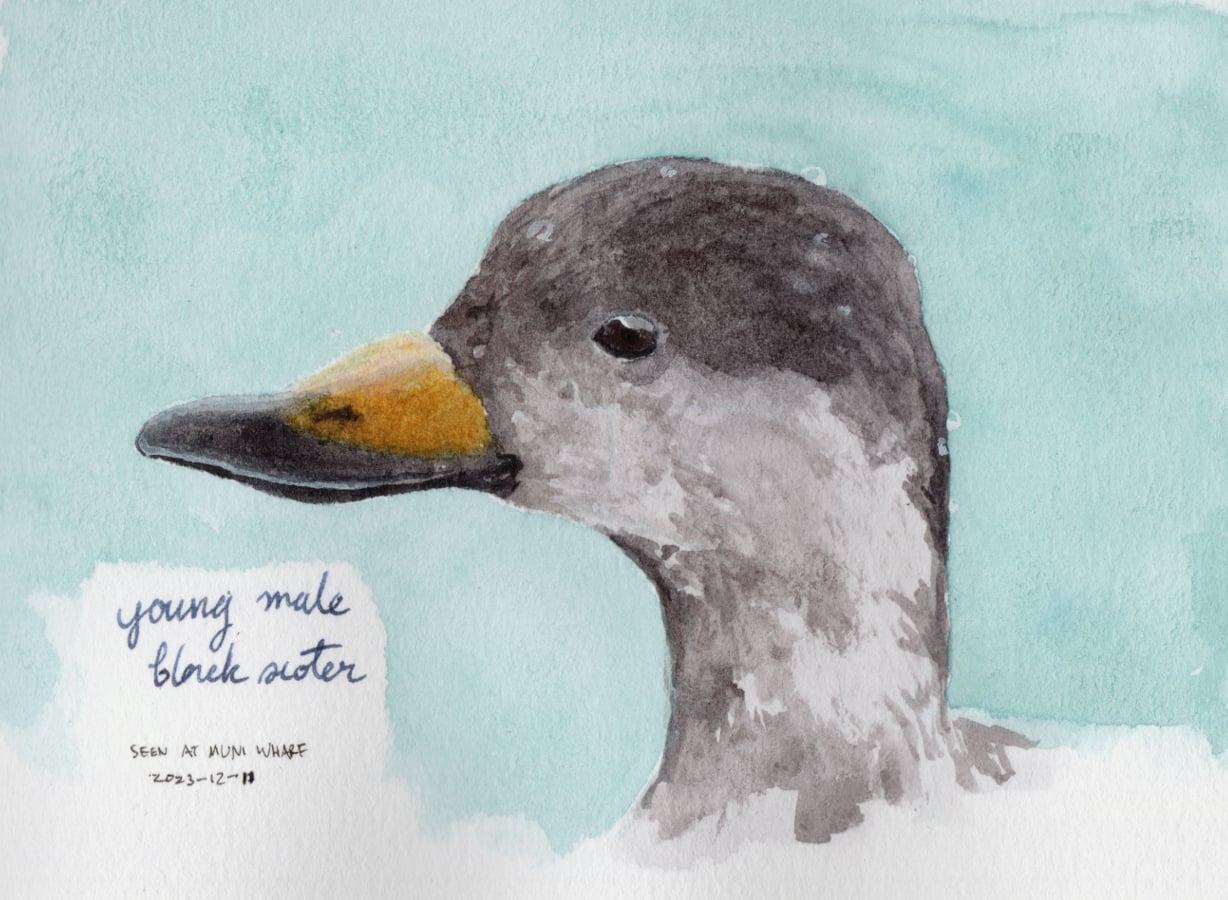 young male
black scoter
SEEN AT MUNI WHARF
2023-12-11